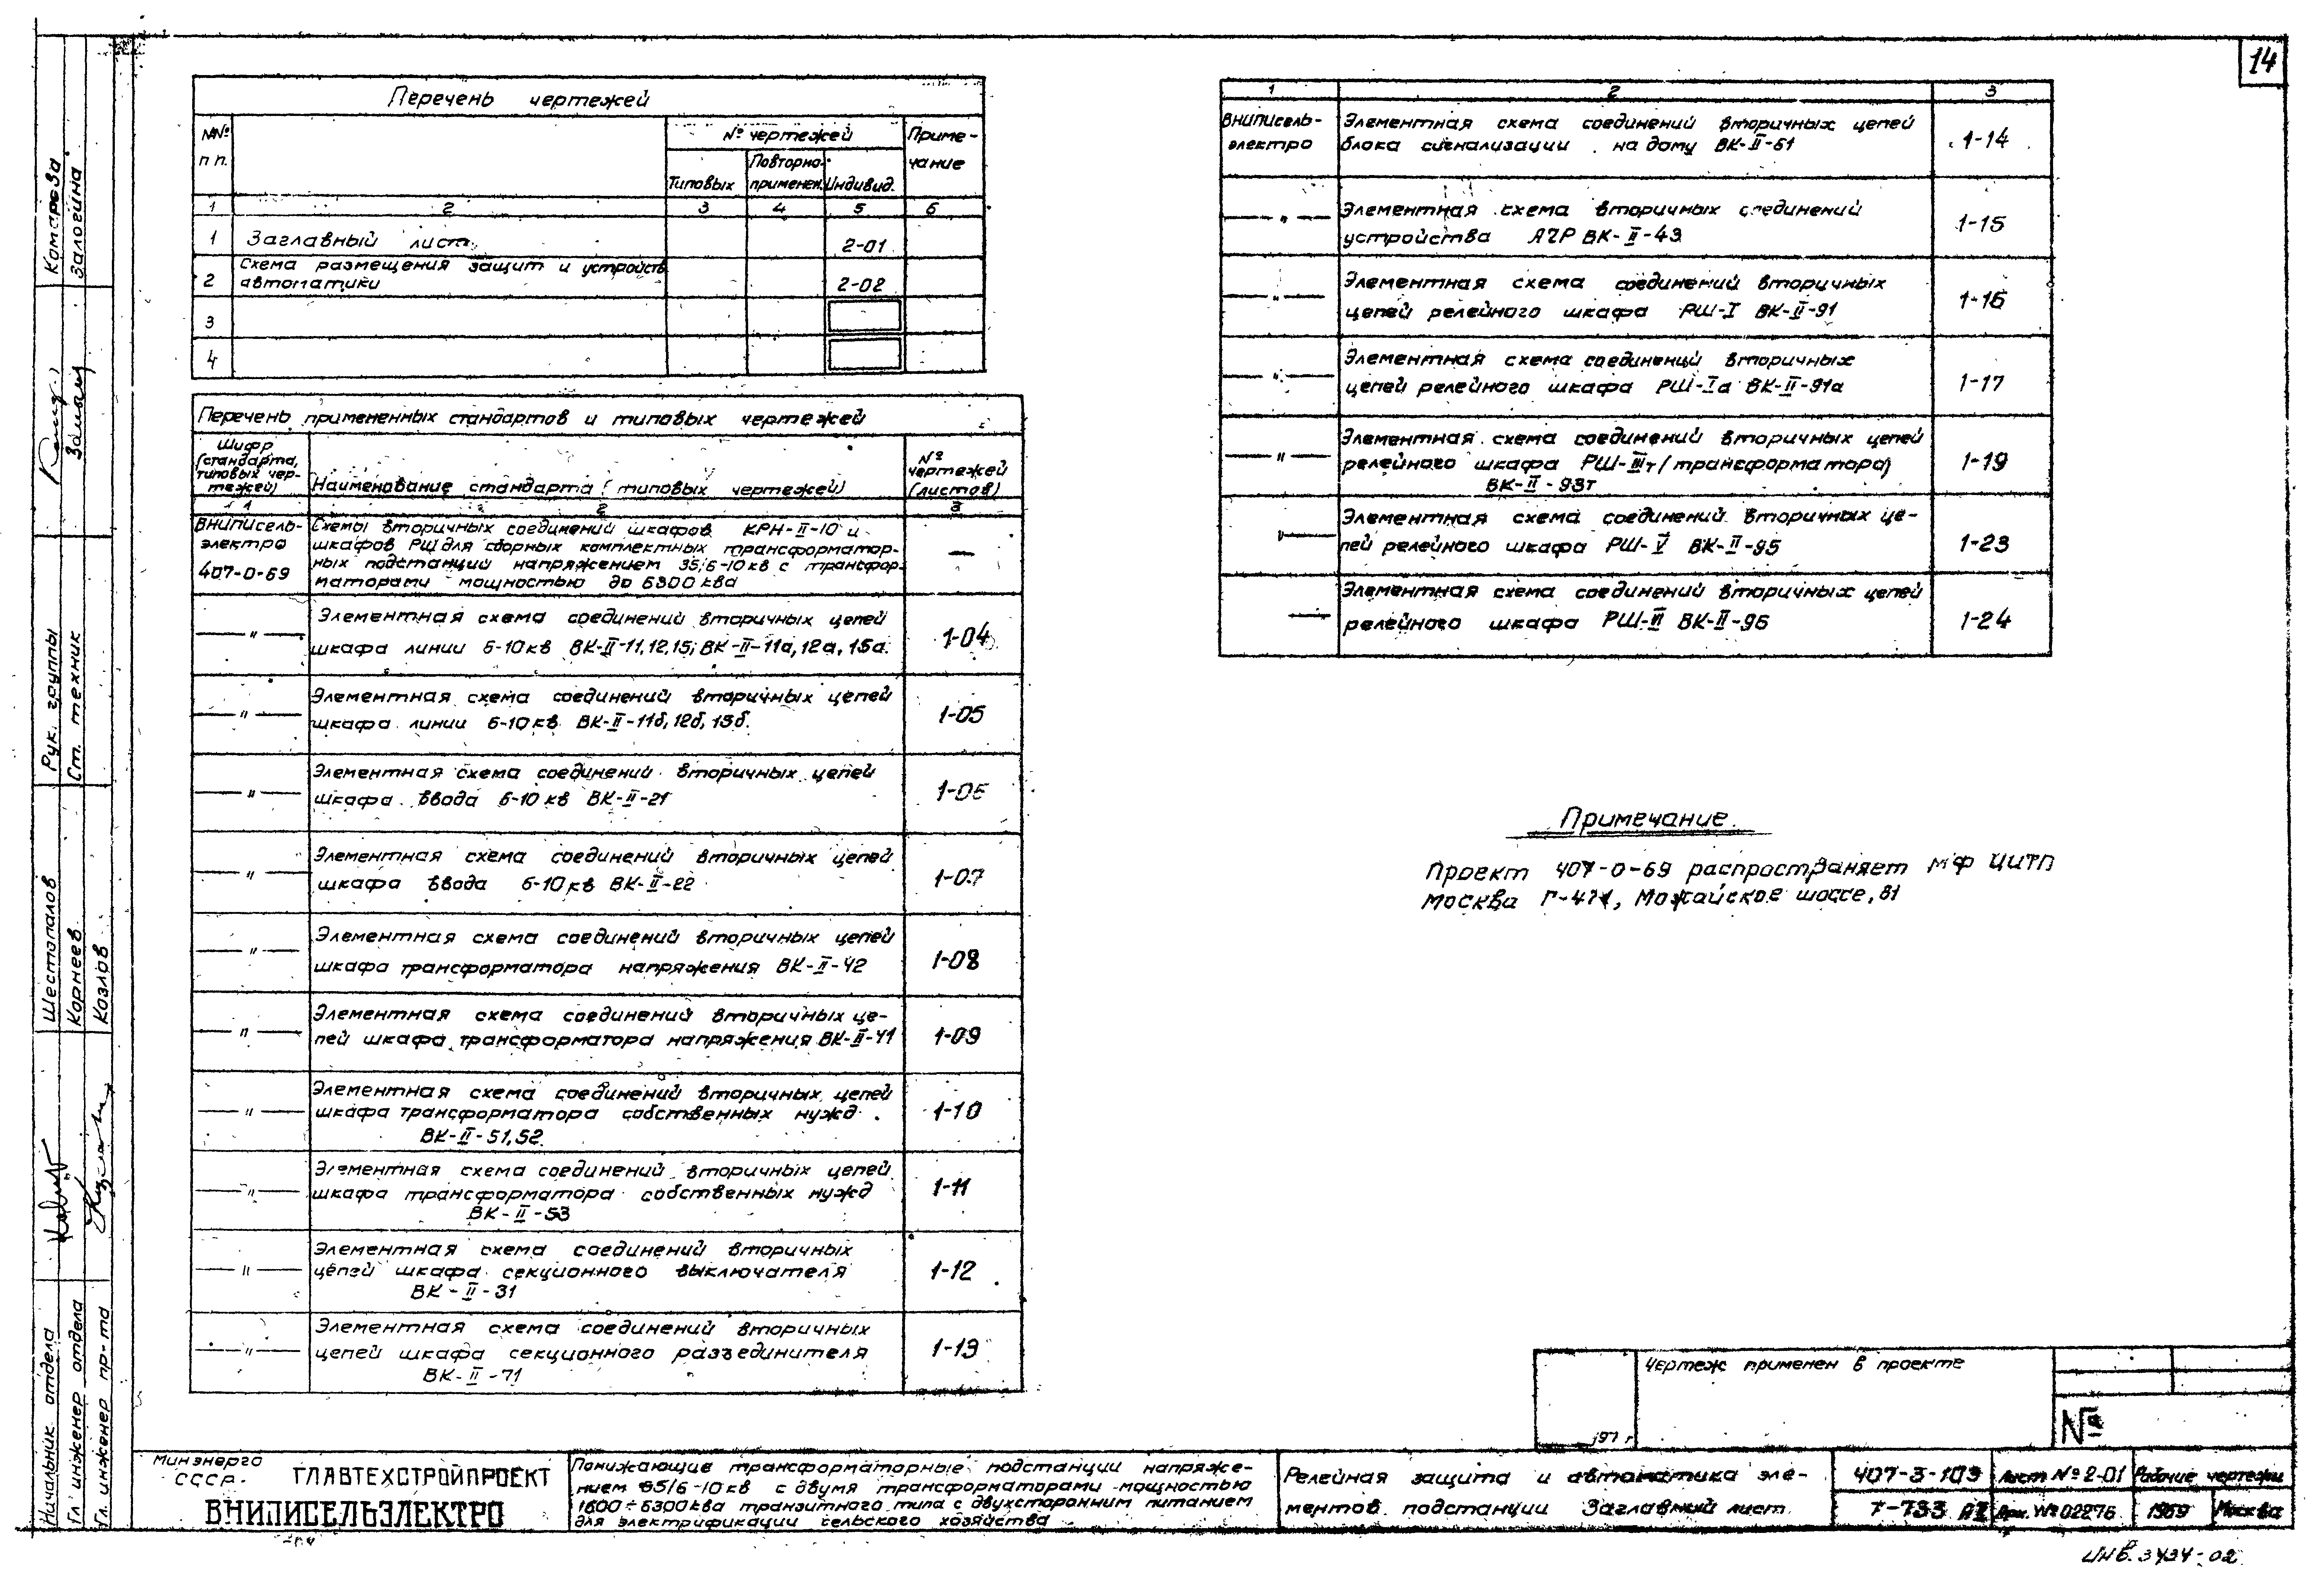 14
Перечень чертежей
№№ п п.
№ чертежей
Приме-
чание
Типовых
Повторно-
применен.
Индивид.
1 2 3 4 5 6
1 Заглавный лист. 2-01
2 Схема размещения защит и устройств
автоматики 2-02
3
4
Перечень примененных стандартов и типовых чертежей
Шифр
(стандарта,
типовых чер-
тежей)
Наименование стандарта (типовых чертежей)
№
чертежей
(листов)
1 2 3
ВНИПИСЕЛЬ-
электро
407-0-69
Схемы вторичных соединений шкафов КРН-II-10 и
шкафов РШ для сборных комплектных трансформатор-
ных подстанций напряжением 35/6-10 кв с трансфор-
маторами мощностью до 6300 ква
—
—"— Элементная схема соединений вторичных цепей
шкафа линии 6-10 кв ВК-II-11, 12, 15; ВК-II-11а, 12а, 15а. 1-04
—"— Элементная схема соединений вторичных цепей
шкафа линии 6-10 кв ВК-II-11б, 12б, 13б. 1-05
—"— Элементная схема соединений вторичных цепей
шкафа ввода 6-10 кв ВК-II-21 1-06
—"— Элементная схема соединений вторичных цепей
шкафа ввода 6-10 кв ВК-II-22 1-07
—"— Элементная схема соединений вторичных цепей
шкафа трансформатора напряжения ВК-II-42 1-08
—"— Элементная схема соединений вторичных це-
пей шкафа трансформатора напряжения ВК-II-41 1-09
—"— Элементная схема соединений вторичных цепей
шкафа трансформатора собственных нужд
ВК-II-51, 52 1-10
—"— Элементная схема соединений вторичных цепей
шкафа трансформатора собственных нужд
ВК-II-53 1-11
—"— Элементная схема соединений вторичных
цепей шкафа секционного выключателя
ВК-II-31 1-12
—"— Элементная схема соединений вторичных
цепей шкафа секционного разъединителя
ВК-II-71 1-13
1 2 3
ВНИПИСЕЛЬ-
электро
Элементная схема соединений вторичных цепей
блока сигнализации на дому ВК-II-61 1-14
—"— Элементная схема вторичных соединений
устройства АЧР ВК-II-43 1-15
—"— Элементная схема соединений вторичных
цепей релейного шкафа РШ-I ВК-II-91 1-16
—"— Элементная схема соединений вторичных
цепей релейного шкафа РШ-Iа ВК-II-91а 1-17
—"— Элементная схема соединений вторичных цепей
релейного шкафа РШ-IIIт (трансформатора)
ВК-II-93т 1-19
"— Элементная схема соединений вторичных це-
пей релейного шкафа РШ-V ВК-II-95 1-23
— Элементная схема соединений вторичных цепей
релейного шкафа РШ-VI ВК-II-96 1-24
Примечание.
Проект 407-0-69 распространяет МФ ЦИТП
Москва Можайское шоссе, 81
Чертеж применен в проекте
197 г
№
Минэнерго
СССР.
ГЛАВТЕХСТРОЙПРОЕКТ
ВНИПИСЕЛЬЭЛЕКТРО
Понижающие трансформаторные подстанции напряже-
нием 35/6-10 кв с двумя трансформаторами мощностью
1600÷6300 ква транзитного типа с двухсторонним питанием
для электрификации сельского хозяйства
Релейная защита и автоматика эле-
ментов подстанции Заглавный лист.
407-3-103 Лист №2-01 Рабочие чертежи
Т-733 АII Арх. №02276 1969 Москва
Инв. 3434-02
Начальник отдела Шестопалов
Гл. инженер отдела Корнеев
Гл. инженер пр-та Козлов
Рук. группы
Ст. техник Залогина